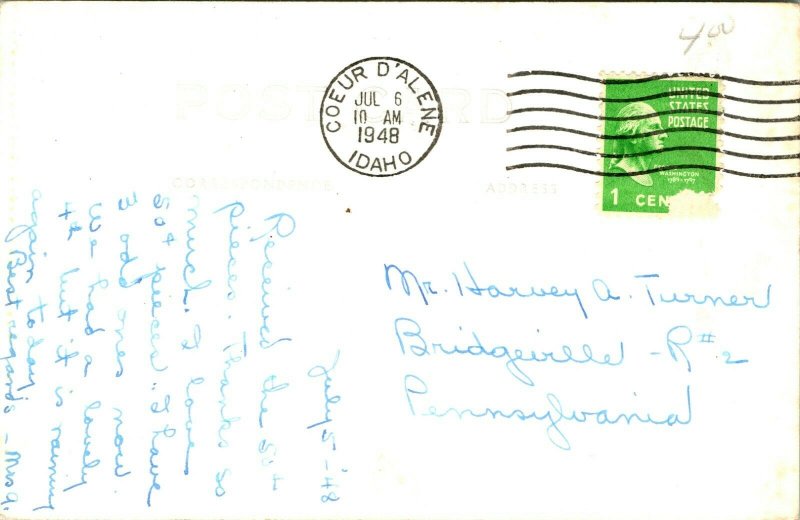 4.00
POST CARD
COEUR D'ALENE
JUL 6
10 AM
1948
IDAHO
UNITED
STATES
POSTAGE
WASHINGTON
1789-1797
1 CEN
CORRESPONDENCE
ADDRESS
July 5 - '48
Received the 50¢
pieces. Thanks so
much. I love
50¢ pieces. I have
3 odd ones now.
We had a lovely
4th but it is raining
again today.
Best regards - Mrs A.
Mr. Harvey A. Turner
Bridgeville - R#2
Pennsylvania